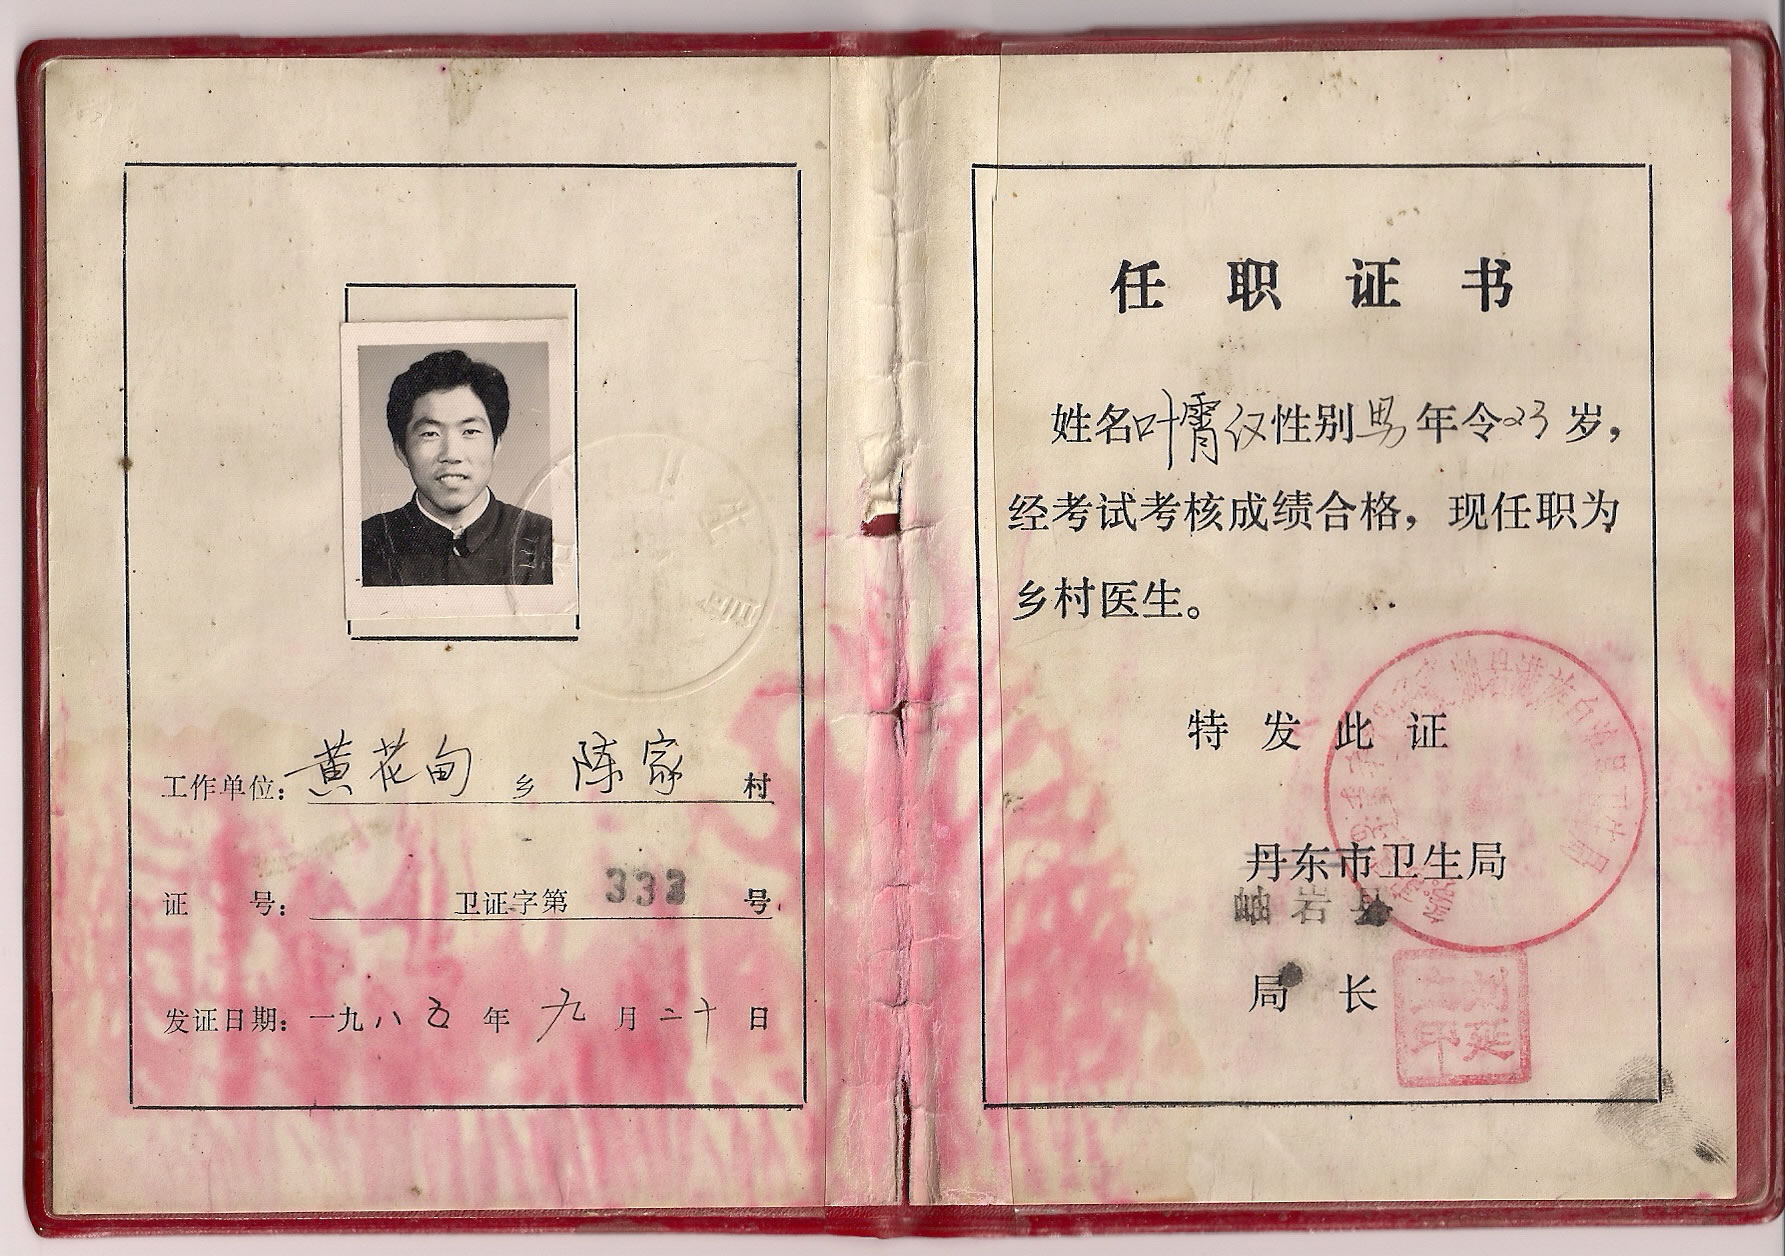 工作单位：黄花甸乡陈家村
证号：卫证字第332号
发证日期：一九八五年九月二十日
任职证书
姓名叶霄仪性别男年令23岁，
经考试考核成绩合格，现任职为
乡村医生。
特发此证
丹东市卫生局
岫岩县
局长